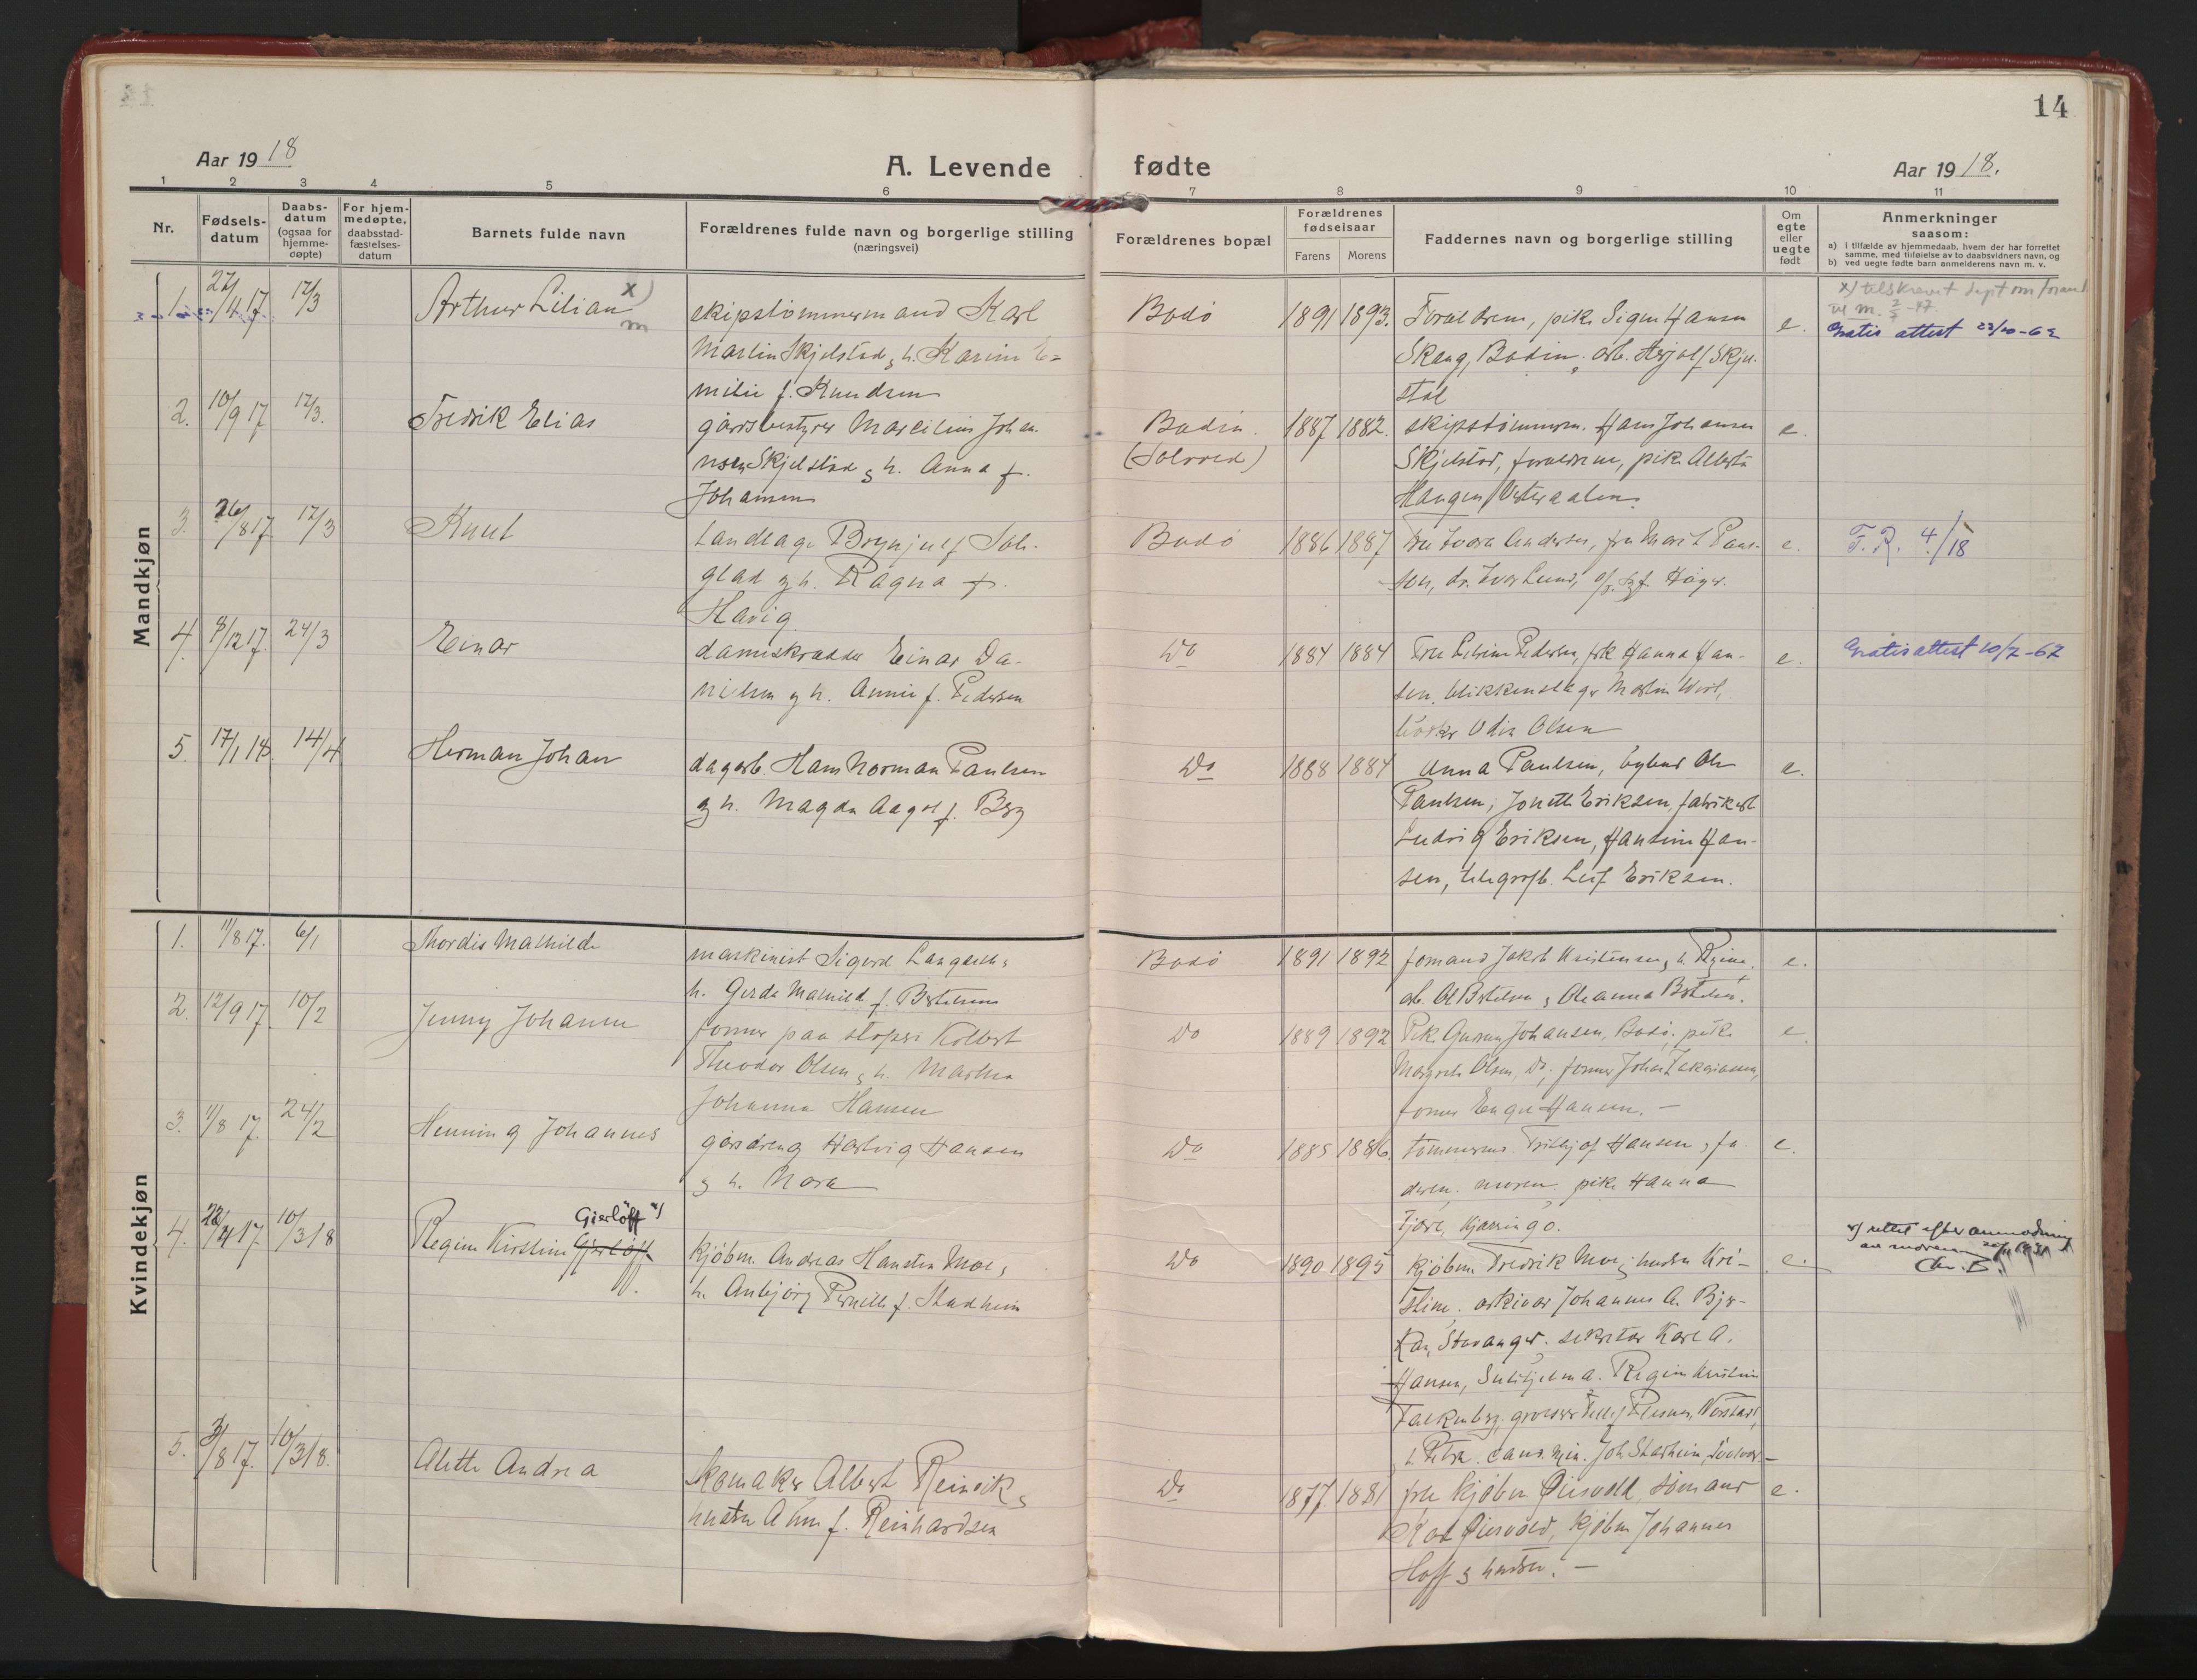 14
Aar 1918
A. Levende fødte
Aar 1918.
1 2 3 4 5 6 7 8 9 10 11
Nr.
Fødsels-
datum
Daabs-
datum
(ogsaa for
hjemme-
døpte)
For hjem-
medøpte,
daabsstad-
fæstelses-
datum
Barnets fulde navn
Forældrenes fulde navn og borgerlige stilling
(næringsvei)
Forældrenes bopæl
Forældrenes
fødselsaar
Farens Morens
Faddernes navn og borgerlige stilling
Om
egte
eller
uegte
født
Anmerkninger
saasom:
a) i tilfælde av hjemmedaab, hvem der har forrettet
samme, med tilføielse av to daabsvidners navn, og
b) ved uegte fødte barn anmelderens navn m. v.
Mandkjøn
1. 27/11 17. 17/3 Arthur Lilian x)
skipstømmermand Karl
Martin Skjelstad og h. Karine E-
milie f. Knudsen
Bodø 1891 1893.
Foreldrene, pike Signe Hansen
Skaug, Bodin, arb. Herjolf Skjel-
stad
e.
Gratis attest 23/10-62
2. 10/9 17 17/3. Fredrik Elias
gårdsbestyrer Marcilius Johan-
nsen Skjelstad og h. Anna f.
Johansen
Bodin.
1887 1882.
skipstømmerm. Hans Johansen
Skjelstad, foreldrene, pike Alberta
Haugen, Vesteraalen.
e.
3. 26/8 17. 17/3 Knut
tandlæge Brynjulf Sol-
glad og h. Ragna f.
Havig
Bodø 1886 1887
e.
F. R. 4/18
4. 8/12 17. 24/3 Einar
dameskrædder Einar Da-
nielsen og h. Annie f. Pedersen
Do 1884 1884
Fru Petrine Pedersen, frk Hanna Han-
sen, blikkenslager Martin Wiol,
Odin Olsen
e.
Gratis attest 10/7-62
5. 17/1 18. 14/4 Herman Johan
dagarb. Hans Norman Paulsen
og h. Magda Aagot f. Berg
Do 1888 1884
Anna Paulsen, bybud Ole
Paulsen, Jonette Eriksen, fabrikarb
Ludvig Eriksen, Hansine Han-
sen, telegrafb. Leif Eriksen.
e.
Kvindekjøn
1. 11/8 17. 6/1 Thordis Mathilde
maskinist Sigurd Langseth og
h. Gerda Mathild f. Bertelsen
Bodø 1891 1892
formand Jakob Kristensen og h. Regine.
arb. Ol Bertelsen og Oleanna Bertelsen.
e.
2. 12/9 17. 10/2 Jenny Johanne
former paa støperi Kolbert
Theodor Olsen og h. Martha
Johanna Hansen
Do 1889 1892
Pik. Gunny Johansen, Bodø, pike
Margrete Olsen, Do, former Johan Zakariassen,
former Enge Hansen. —
e
3. 11/8 17. 24/2 Henning Johannes
gårdsdreng Hartvig Hansen
og h. Nora
Do 1885 1886.
tømmerm. Fritjof Hansen, fa-
deren, moren, pike Hanna
Fjære, Kjærringø.
e.
4. 22/4 17. 10/3 18 Regine Kirstine Gjerløff Gierlöff x)
kjøbm. Andreas Hansten Moe og
h. Anbjørg Pernille f. Stadheim
Do 1890 1895
kjøbm. Fredrik Moe og hustru Kri-
stine, arkivar Johannes A. Bjer-
kan, Stavanger, sekretær Karl A.
Hansen, Sulitjelma. Regine Kristine
Falkenberg,
e.
x) rettet efter anmodning
av moderen 20/11 1931
Chr. B.
5. 3/8 17. 10/3 18. Alette Andrea
Skomaker Albert Reinvik og
hustru Anna f. Reinhardsen
Do 1877 1881
fru kjøbm Øiesvold, sømand
Kal Øiesvold, kjøbm Johannes
Hoff og hustru. —
e.